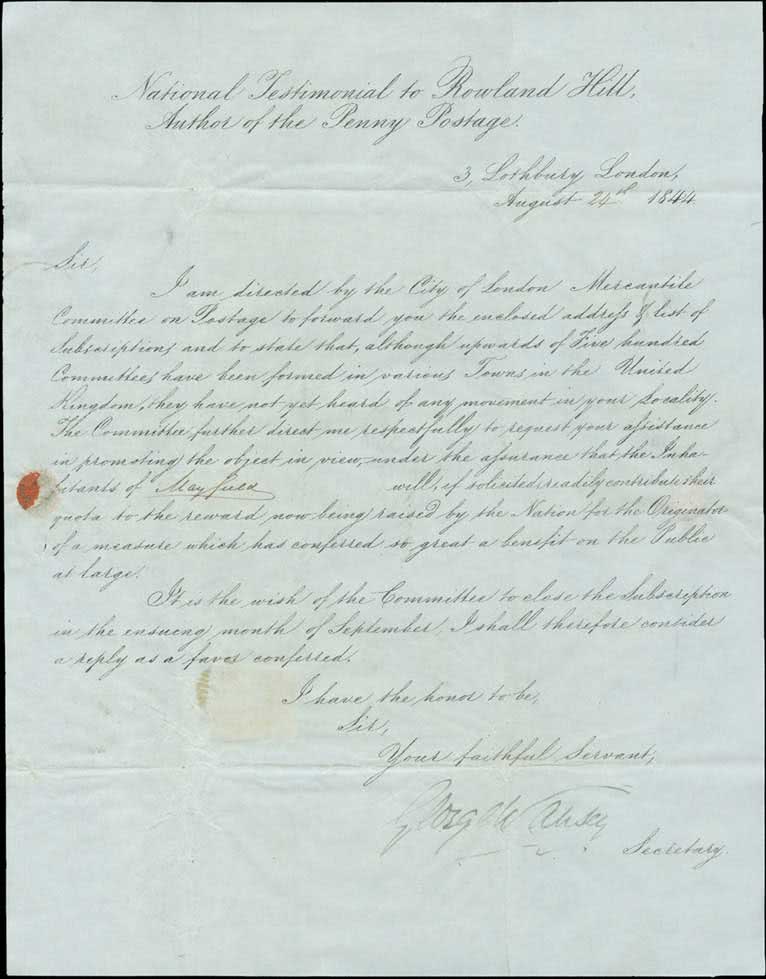 National Testimonial to Rowland Hill,
Author of the Penny Postage.
3, Lothbury, London,
August 24th 1844.
Sir,
I am directed by the City of London Mercantile
Committee on Postage to forward you the enclosed address & list of
Subscriptions and to state that, although upwards of Five hundred
Committees have been formed in various Towns in the United
Kingdom, they have not yet heard of any movement in your Locality.
The Committee further direct me respectfully to request your assistance
in promoting the object in view, under the assurance that the Inha-
bitants of Mayfield will, if solicited, readily contribute their
quota to the reward now being raised by the Nation for the Originator
of a measure which has conferred so great a benefit on the Public
at large.
It is the wish of the Committee to close the Subscription
in the ensueng month of September, I shall therefore consider
a reply as a favor conferred.
I have the honor to be,
Sir,
Your faithful Servant,
Secretary.